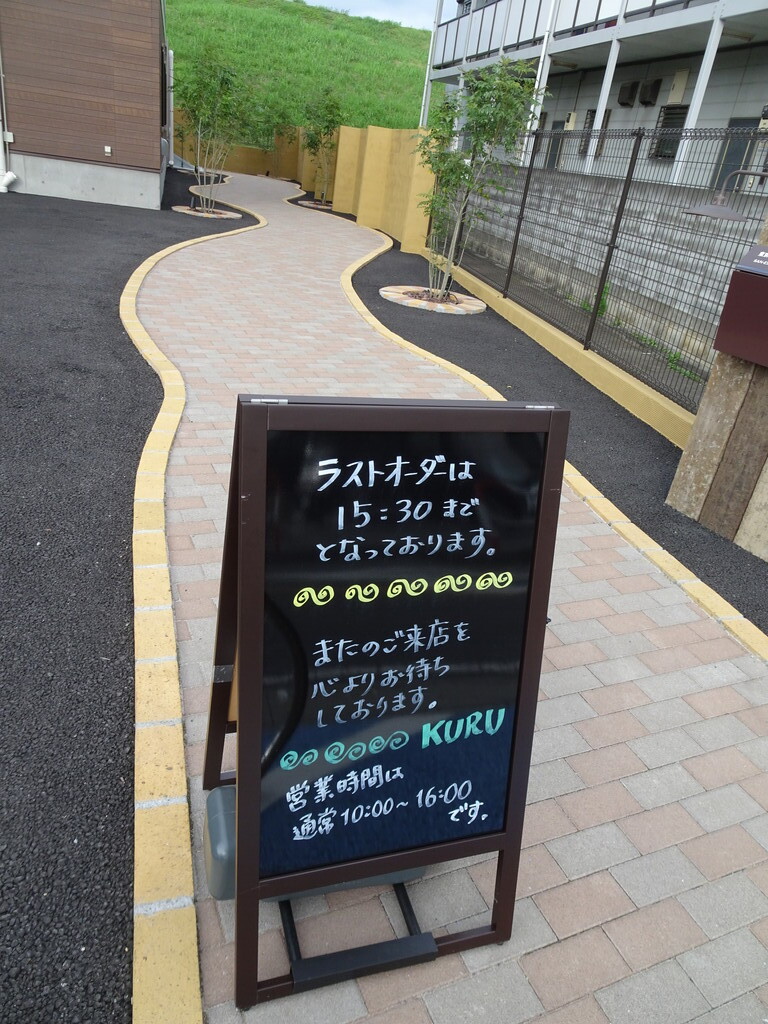 ラストオーダーは
15:30まで
となっております。
またのご来店を
心よりお待ち
しております。
KURU
営業時間は
通常10:00~16:00
です。